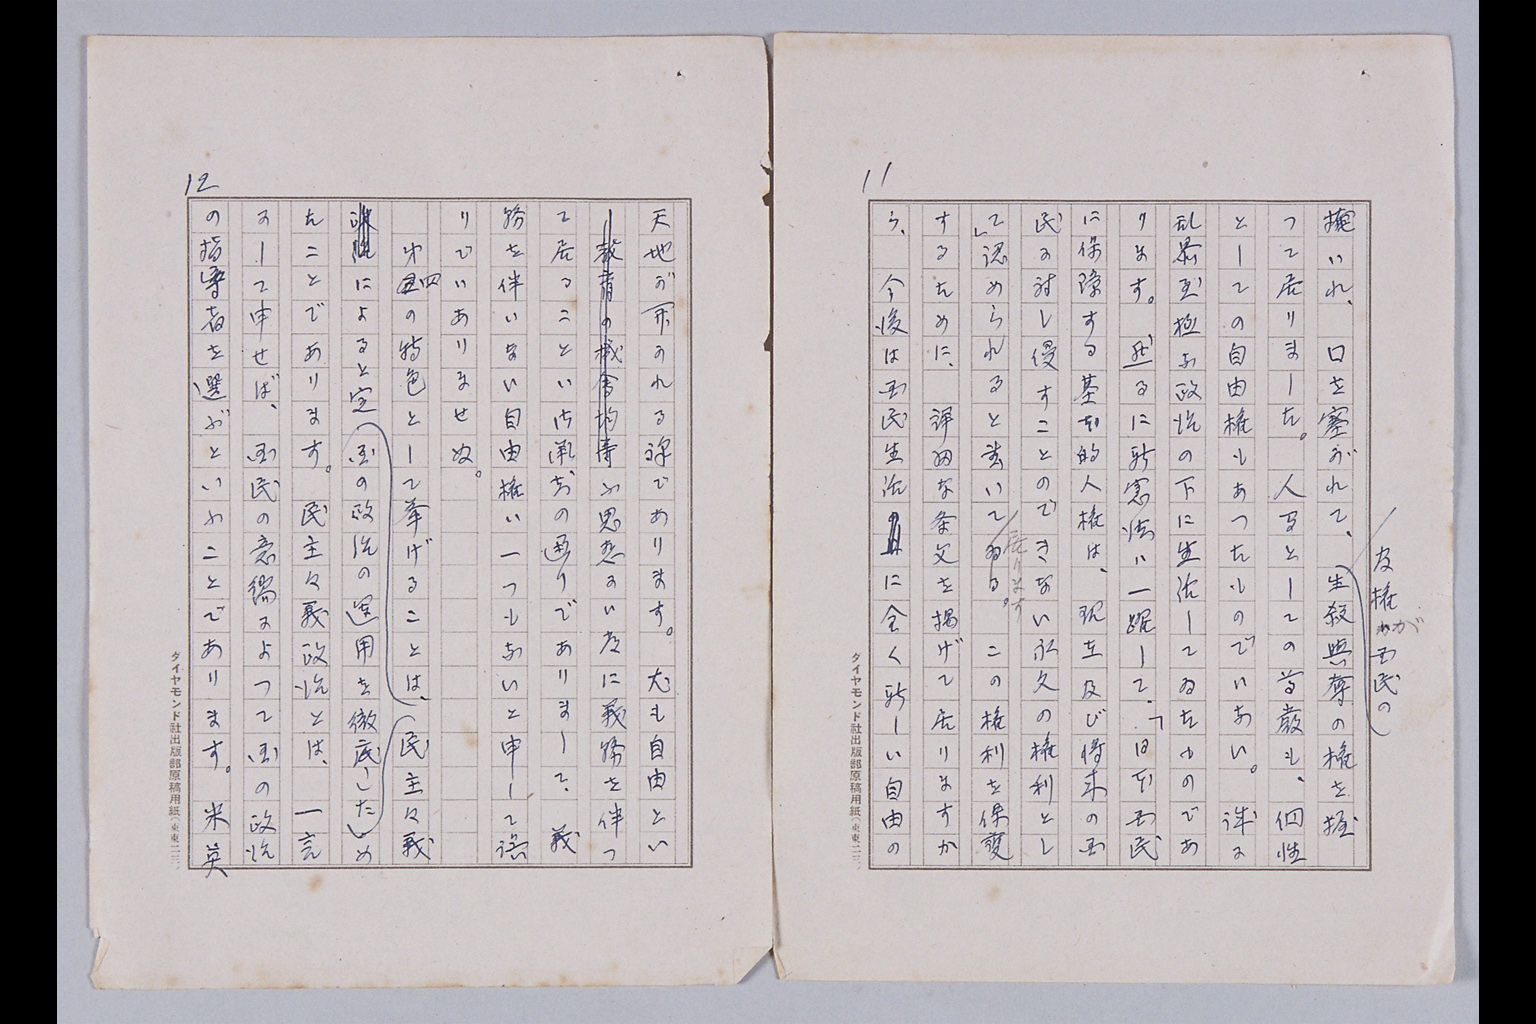 11
官権が国民の
掩いれ、口を塞がれて、生殺與奪の権を握
つて居りました。人 としての尊厳も、個性
としての自由権もあつたものでハない。誠に
乱暴至極な政治の下に生活してゐたものであ
ります。然るに新憲法ハ一躍して、「日本国民
に保障する基本的人権は、現在及び将来の国
民に対し侵すことのできない永久の権利とし
て」認められると書いてゐる。この権利を保
居ります
するために、詳細な条文を掲げて居りますか
ら、今後は国民生活に全く新しい自由の
12
天地が開かれる譯であります。尤も自由とい
教育の機会均等ふ思想にハ 度に義務を伴つ
て居ることハ御承知の通りでありまして、義
務を伴ハない自由権ハ一つもないと申して誤
りでハありませぬ。
第四の特色として挙げることは、民主々義
によると定国の政治の運用を徹底しため
たことであります。民主々義政治とは、一言
にして申せば、国民の意嚮によつて国の政治
の指導者を選ぶといふことであります。米英
ダイヤモンド社出版部原稿用紙
ダイヤモンド社出版部原稿用紙